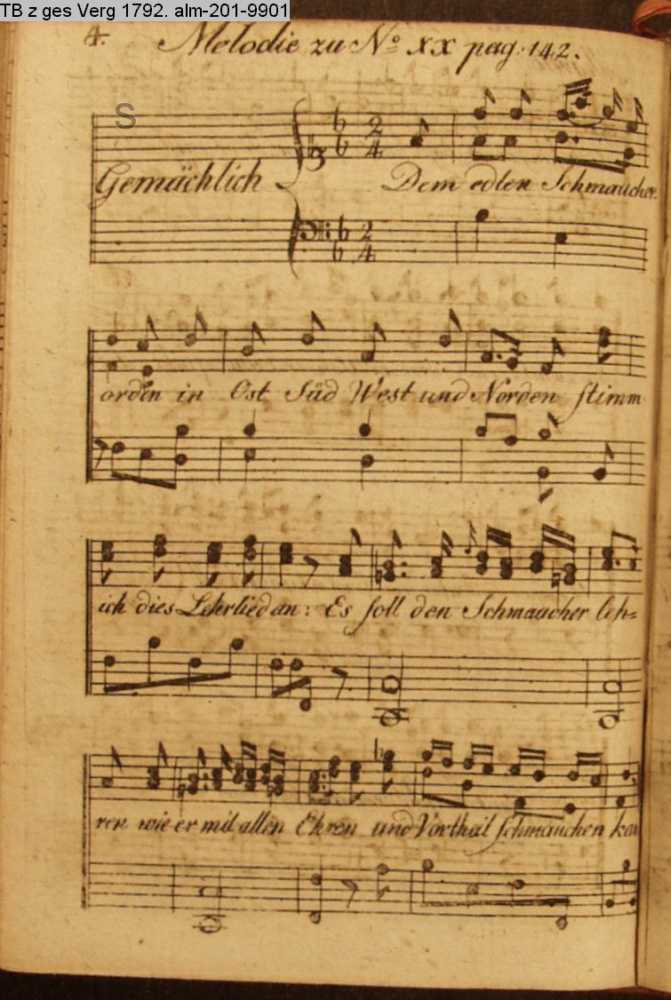 TB z ges Verg 1792. alm-201-9901
4. Melodie zu No XX pag. 142.
S
2 4
Gemächlich Dem edlen Schmaucher
2 4
orden in Ost Süd West und Norden stimm
ich dies Lehrlied an: Es soll den Schmaucher leh=
ren wie er mit allen Ehren und Vortheil schmauchen kan